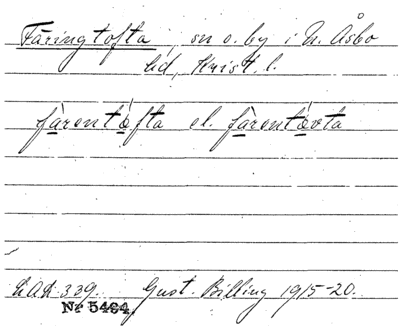 Färingtofta, sn o. by i N. Åsbo
hd, Krist. l.
färentåfta el. färentåvta
LAL 339. Gust. Billing 1915-20.
Nr 5494.